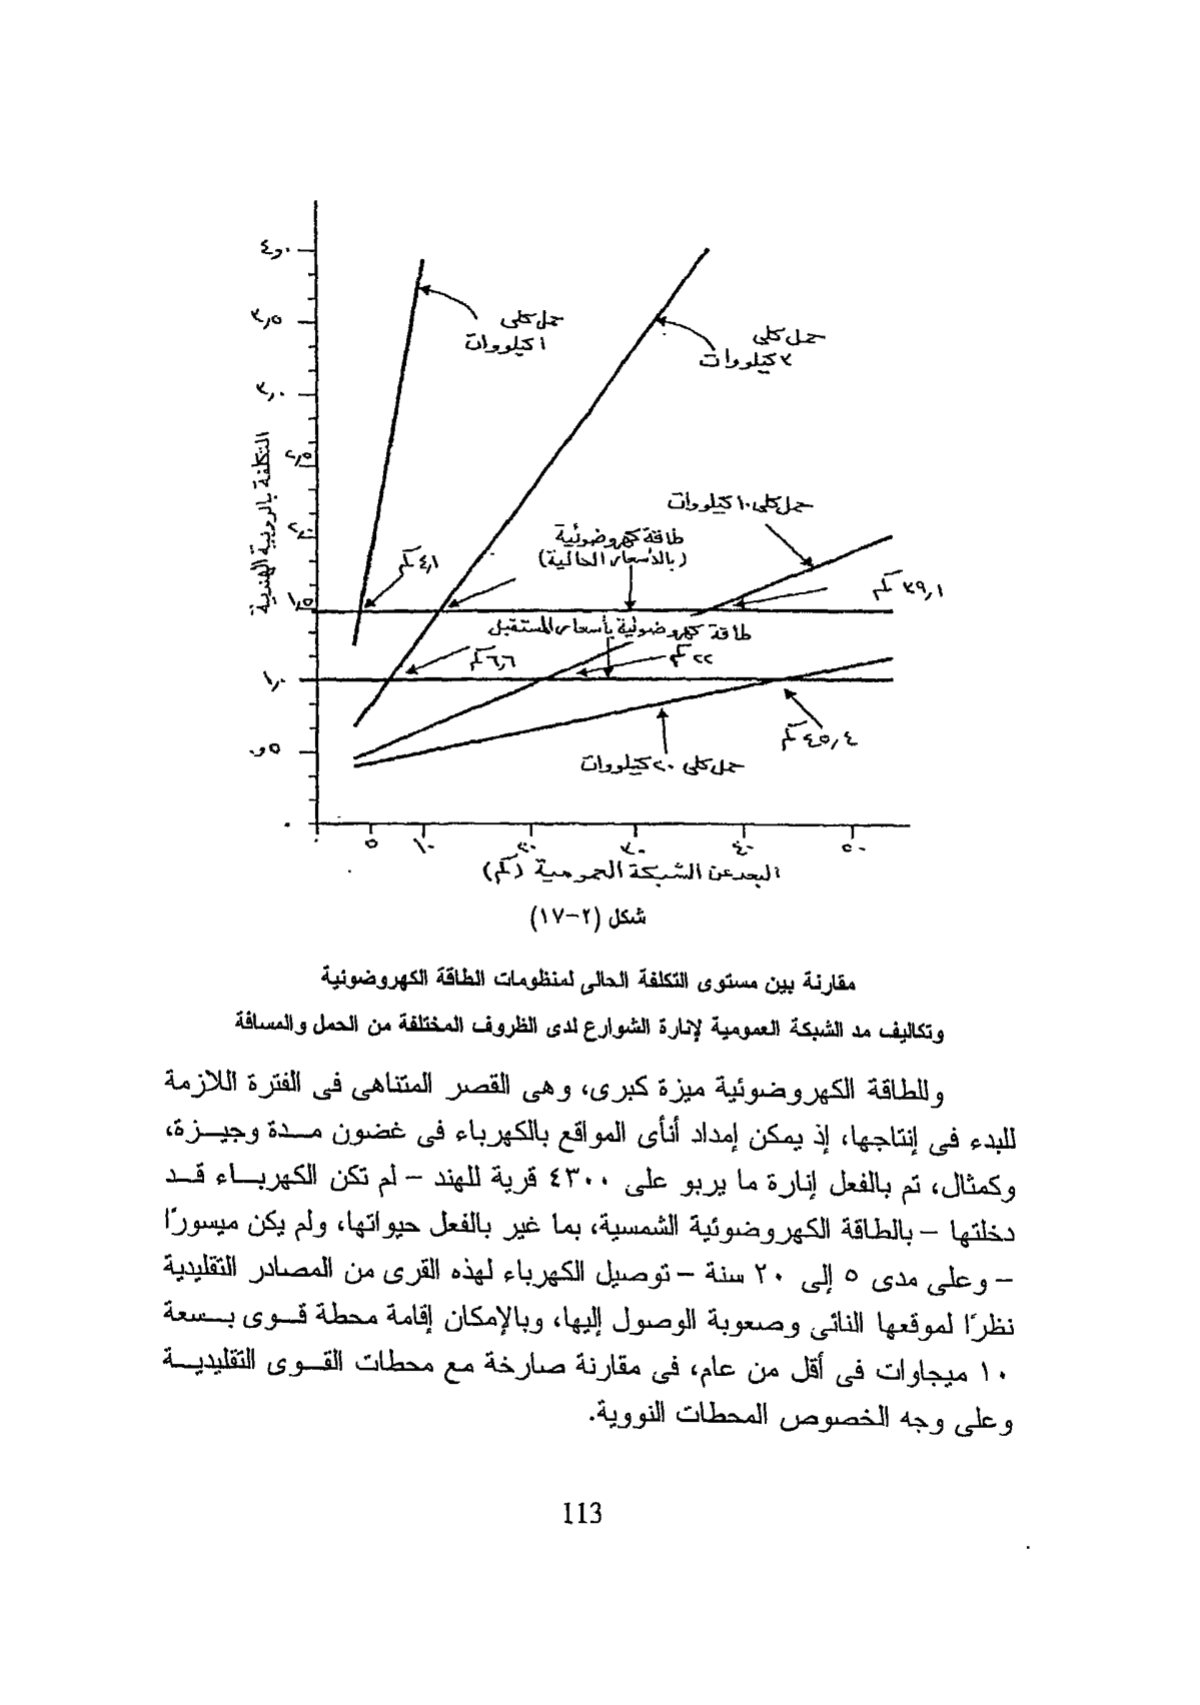 ٤,٠
٣,٥
٣,٠
٢,٥
٢,٠
١,٥
١,٠
٠,٥
٠
التكلفة بالروبية الهندية
حمل كلى
١ كيلووات
حمل كلى
٣ كيلووات
حمل كلى ١٠ كيلووات
طاقة كهروضوئية
(بالأسعار الحالية)
٤,١ كم
٣٩,١ كم
طاقة كهروضوئية بأسعار المستقبل
٦,٦ كم
٢٢ كم
٤٥,٤ كم
حمل كلى ٢٠ كيلووات
٠ ٥ ١٠ ٢٠ ٣٠ ٤٠ ٥٠
البعد عن الشبكة العمومية (كم)
شكل (٢-١٧)
مقارنة بين مستوى التكلفة الحالى لمنظومات الطاقة الكهروضوئية
وتكاليف مد الشبكة العمومية لإنارة الشوارع لدى الظروف المختلفة من الحمل والمسافة
وللطاقة الكهروضوئية ميزة كبرى، وهى القصر المتناهى فى الفترة اللازمة
للبدء فى إنتاجها، إذ يمكن إمداد أنأى المواقع بالكهرباء فى غضون مدة وجيزة،
وكمثال، تم بالفعل إنارة ما يربو على ٤٣٠٠ قرية للهند – لم تكن الكهرباء قد
دخلتها – بالطاقة الكهروضوئية الشمسية، بما غير بالفعل حيواتها، ولم يكن ميسورًا
– وعلى مدى ٥ إلى ٢٠ سنة – توصيل الكهرباء لهذه القرى من المصادر التقليدية
نظرًا لموقعها النائى وصعوبة الوصول إليها، وبالإمكان إقامة محطة قوى بسعة
١٠ ميجاوات فى أقل من عام، فى مقارنة صارخة مع محطات القوى التقليدية
وعلى وجه الخصوص المحطات النووية.
113